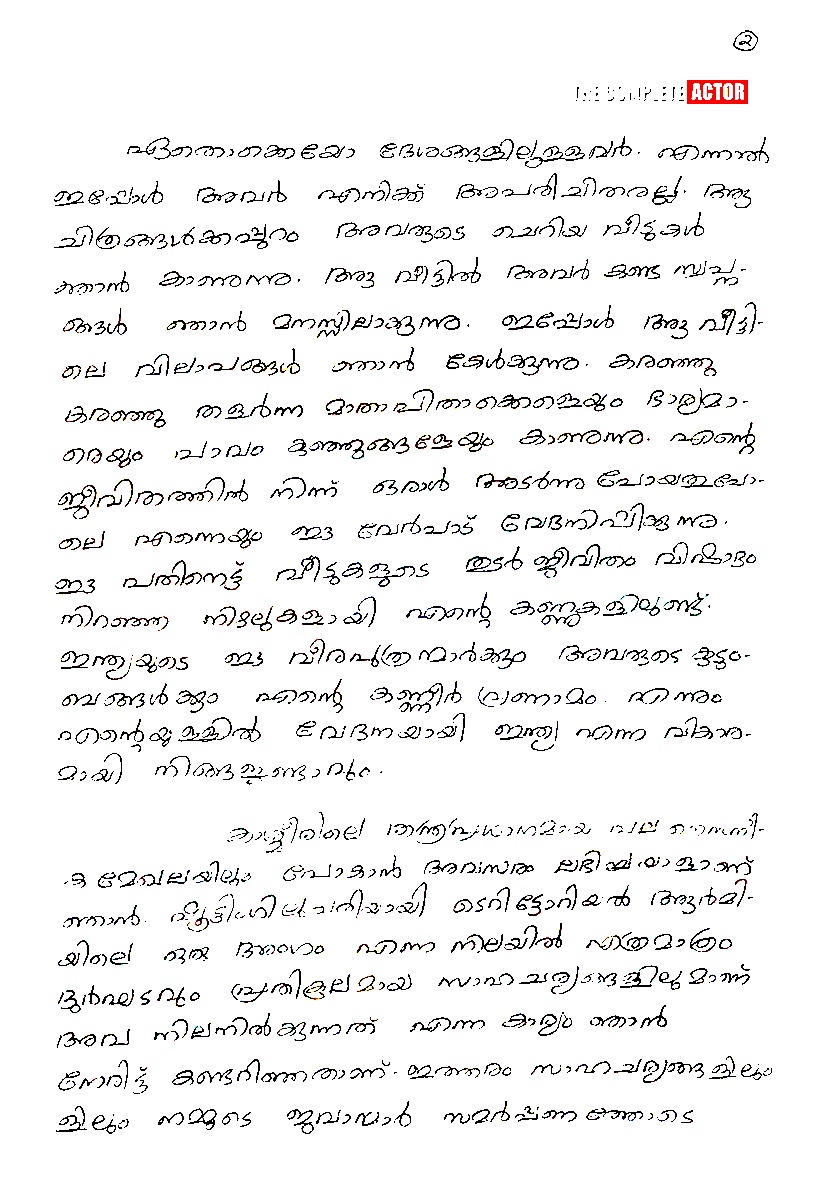 ൨
THE COMPLETE ACTOR
ഏതൊക്കെയോ ദേശങ്ങളിലുള്ളവർ. എന്നാൽ
ഇപ്പോൾ അവർ എനിക്ക് അപരിചിതരല്ല. ആ
ചിത്രങ്ങൾക്കപ്പുറം അവരുടെ ചെറിയ വീടുകൾ
ഞാൻ കാണുന്നു. ആ വീട്ടിൽ അവർ കണ്ട സ്വപ്ന-
ങ്ങൾ ഞാൻ മനസ്സിലാക്കുന്നു. ഇപ്പോൾ ആ വീട്ടി-
ലെ വിലാപങ്ങൾ ഞാൻ കേൾക്കുന്നു. കരഞ്ഞു
കരഞ്ഞു തളർന്ന മാതാപിതാക്കളെയും ഭാര്യമാ-
രെയും പാവം കുഞ്ഞുങ്ങളേയും കാണുന്നു. എന്റെ
ജീവിതത്തിൽ നിന്ന് ഒരാൾ അടർന്നു പോയതുപോ-
ലെ എന്നെയും ഈ വേർപാട് വേദനിപ്പിക്കുന്നു.
ഈ പതിനെട്ട് വീടുകളുടെ തുടർ ജീവിതം വിഷാദം
നിറഞ്ഞ നിഴലുകളായി എന്റെ കണ്ണുകളിലുണ്ട്.
ഇന്ത്യയുടെ ഈ വീരപുത്രന്മാർക്കും അവരുടെ കുടും-
ബങ്ങൾക്കും എന്റെ കണ്ണീർ പ്രണാമം. എന്നും
എന്റെയുള്ളിൽ വേദനയായി ഇന്ത്യ എന്ന വികാര-
മായി നിങ്ങളുണ്ടാവും.
കാശ്മീരിലെ തന്ത്രപ്രധാനമായ പല സൈനി-
ക മേഖലയിലും പോകാൻ അവസരം ലഭിച്ചയാളാണ്
ഞാൻ. ഷൂട്ടിംഗിലുപരിയായി ടെറിട്ടോറിയൽ ആർമി-
യിലെ ഒരു അംഗം എന്ന നിലയിൽ എത്രമാത്രം
ദുർഘടവും പ്രതികൂലമായ സാഹചര്യങ്ങളിലുമാണ്
അവ നിലനിൽക്കുന്നത് എന്ന കാര്യം ഞാൻ
നേരിട്ട് കണ്ടറിഞ്ഞതാണ്. ഇത്തരം സാഹചര്യങ്ങളിലും
ളിലും നമ്മുടെ ജവാന്മാർ സമർപ്പണത്തോടെ